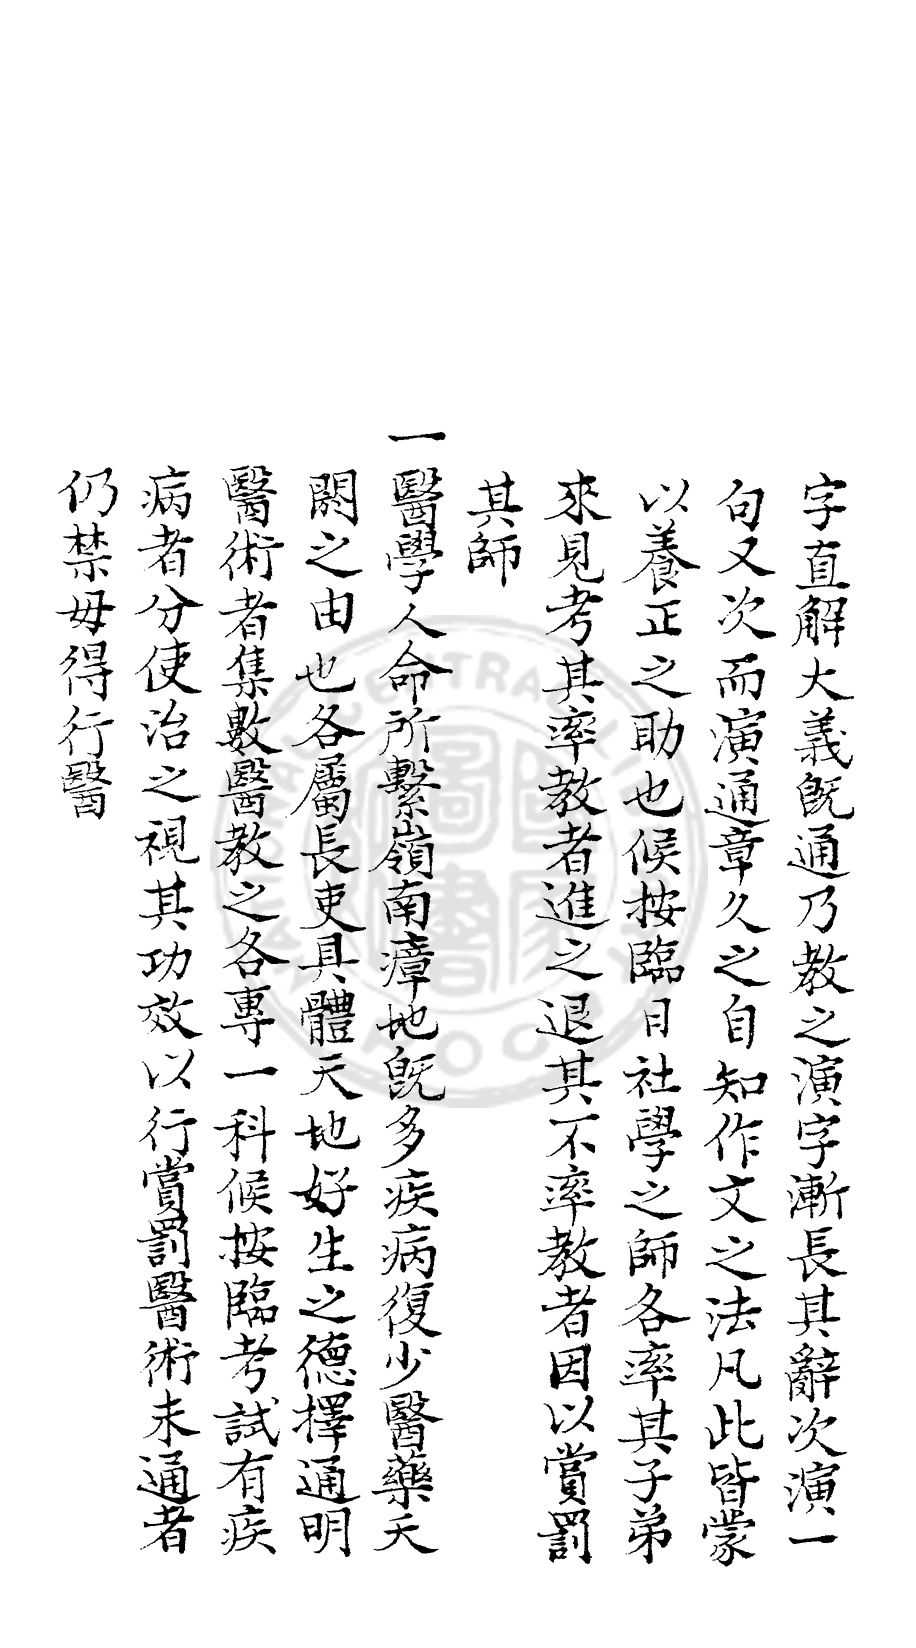 字直解大義既通乃教之演字漸長其辭次演一
句又次而演通章久之自知作文之法凡此皆蒙
以養正之助也候按臨日社學之師各率其子弟
來見考其率教者進之退其不率教者因以賞罰
其師
一醫學人命所繫嶺南瘴地既多疾病復少醫藥夭
閼之由也各屬長吏具體天地好生之德擇通明
醫術者集數醫教之各專一科候按臨考試有疾
病者分使治之視其功效以行賞罰醫術未通者
仍禁毋得行醫
NATIONAL CENTRAL LIBRARY